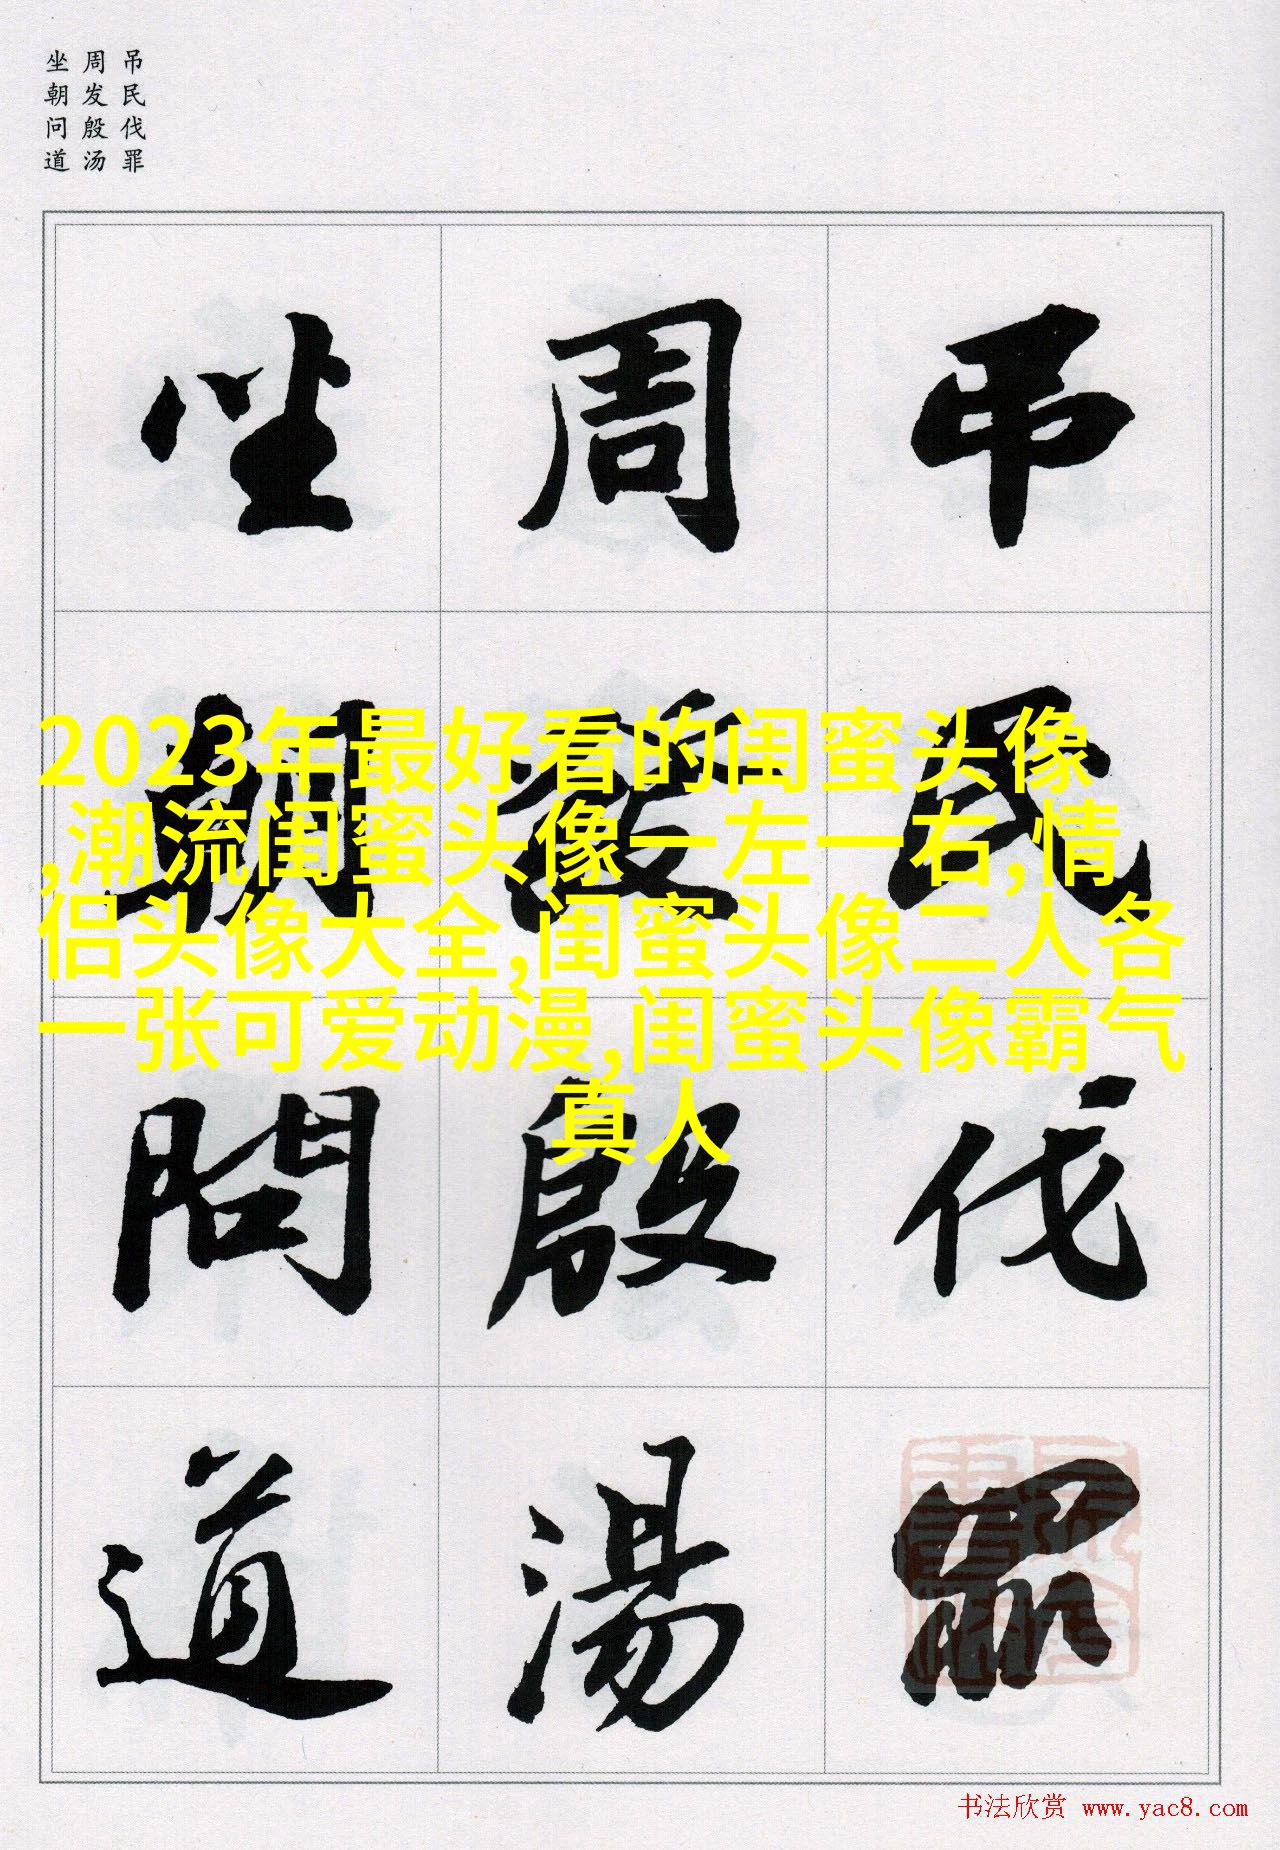 吊民伐罪
周发殷汤
坐朝问道
吊民伐罪
周發殷湯
坐朝問道
2023年最好看的闺蜜头像
,潮流闺蜜头像一左一右,情
侣头像大全,闺蜜头像二人各
一张可爱动漫,闺蜜头像霸气
真人
书法欣赏 www.yac8.com